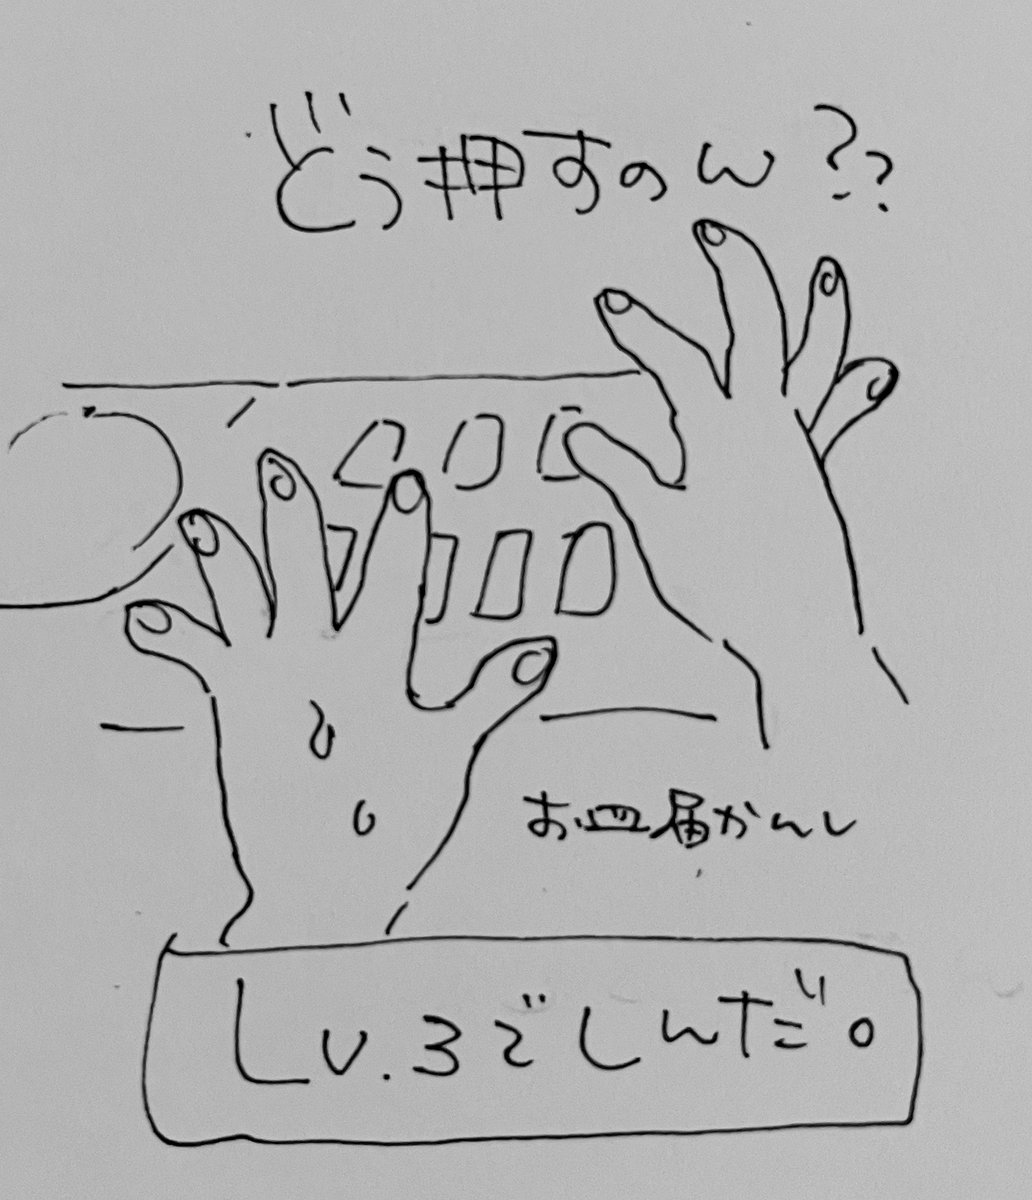 どう押すのん??
お皿届かんし
Lv.3でしんだ。